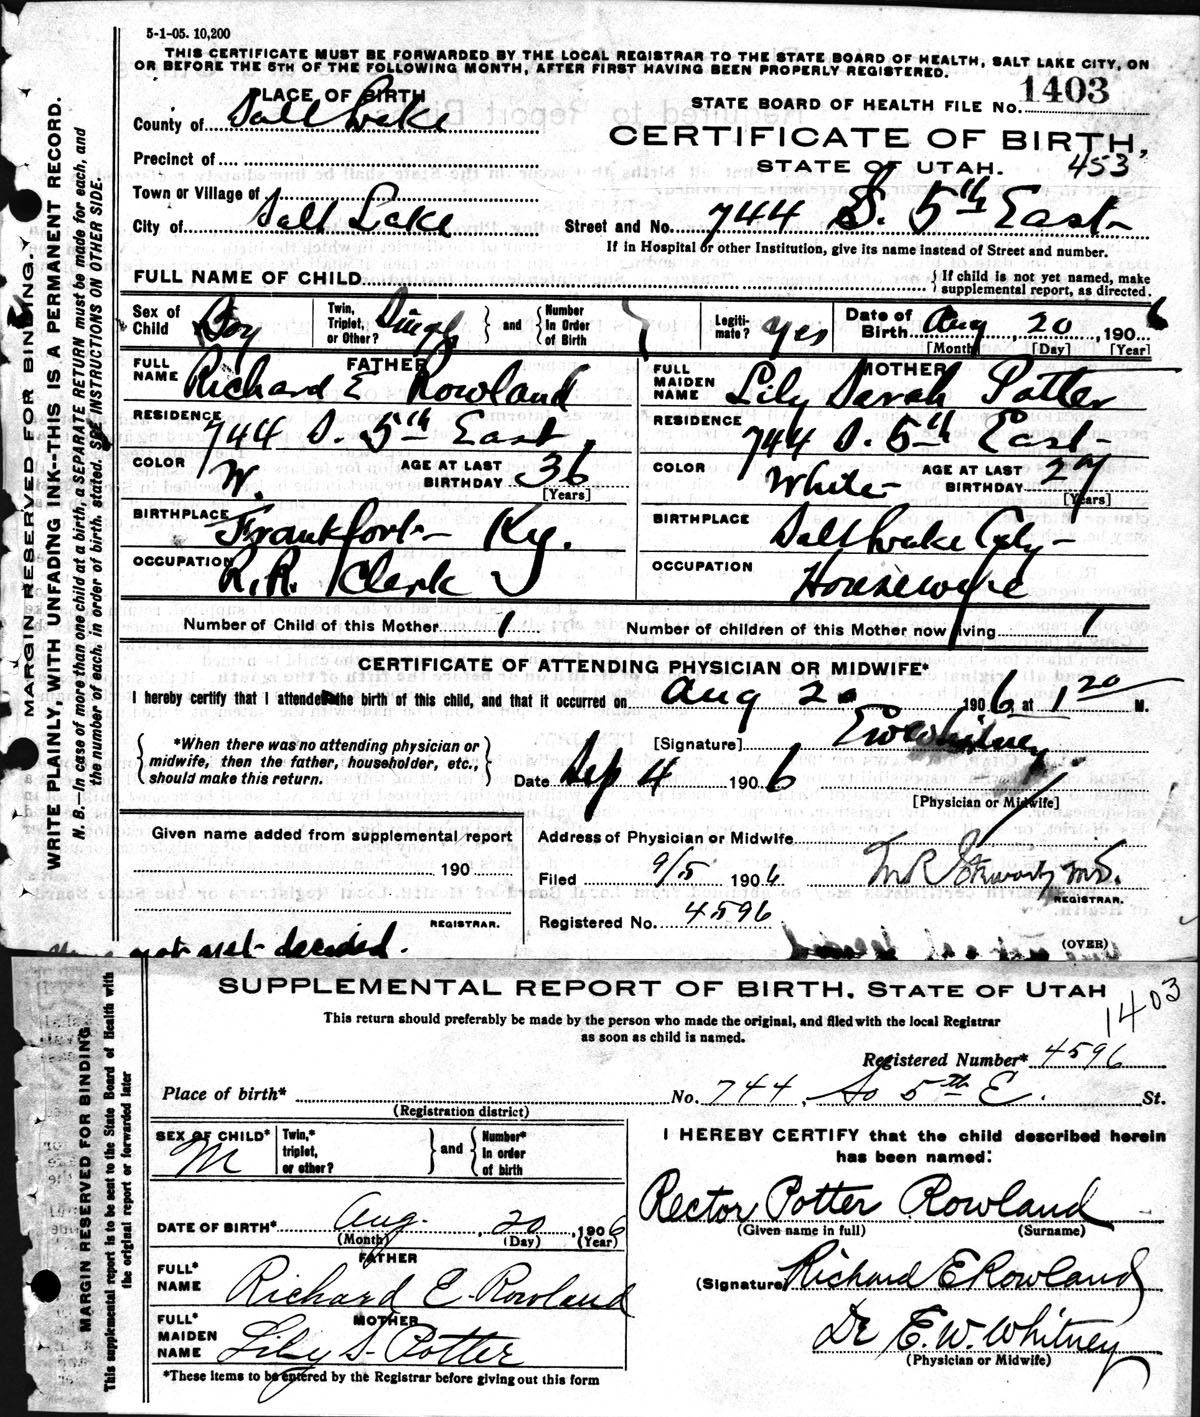 5-1-05. 10,200
THIS CERTIFICATE MUST BE FORWARDED BY THE LOCAL REGISTRAR TO THE STATE BOARD OF HEALTH, SALT LAKE CITY, ON
OR BEFORE THE 5TH OF THE FOLLOWING MONTH, AFTER FIRST HAVING BEEN PROPERLY REGISTERED.
PLACE OF BIRTH
STATE BOARD OF HEALTH FILE No. 1403
County of Salt Lake
CERTIFICATE OF BIRTH,
Precinct of
STATE OF UTAH. 453
Town or Village of
City of Salt Lake
Street and No. 744 S. 5th East
If in Hospital or other Institution, give its name instead of Street and number.
FULL NAME OF CHILD
If child is not yet named, make
supplemental report, as directed.
Sex of Child Boy
Twin, Triplet, or Other? Single and Number In Order of Birth
Legitimate? yes
Date of Birth Aug 20, 1906
[Month] [Day] [Year]
FATHER
FULL NAME Richard E Rowland
RESIDENCE 744 S. 5th East
COLOR W. AGE AT LAST BIRTHDAY 36
[Years]
BIRTHPLACE Frankfort Ky.
OCCUPATION R.R. Clerk
MOTHER
FULL MAIDEN NAME Lily Sarah Potter
RESIDENCE 744 S. 5th East
COLOR White AGE AT LAST BIRTHDAY 27
[Years]
BIRTHPLACE Salt Lake City
OCCUPATION Housewife
Number of Child of this Mother 1
Number of children of this Mother now living 1
CERTIFICATE OF ATTENDING PHYSICIAN OR MIDWIFE*
I hereby certify that I attended the birth of this child, and that it occurred on Aug 20 1906, at 1 20 M.
*When there was no attending physician or
midwife, then the father, householder, etc.,
should make this return.
[Signature] EW Whitney
Date Sep 4 1906
[Physician or Midwife]
Given name added from supplemental report
190
REGISTRAR.
Address of Physician or Midwife
Filed 9/5 1906
REGISTRAR.
Registered No. 4596
not yet decided.
(OVER)
MARGIN RESERVED FOR BINDING.
WRITE PLAINLY, WITH UNFADING INK--THIS IS A PERMANENT RECORD.
N. B.—In case of more than one child at a birth, a SEPARATE RETURN must be made for each, and
the number of each, in order of birth, stated. SEE INSTRUCTIONS ON OTHER SIDE.
SUPPLEMENTAL REPORT OF BIRTH, STATE OF UTAH
1403
This return should preferably be made by the person who made the original, and filed with the local Registrar
as soon as child is named.
Registered Number* 4596
Place of birth* No. 744, So 5th E. St.
(Registration district)
SEX OF CHILD* M
Twin,* triplet, or other? and Number* In order of birth
DATE OF BIRTH* Aug. 20, 1906
(Month) (Day) (Year)
FATHER
FULL* NAME Richard E. Rowland
MOTHER
FULL* MAIDEN NAME Lily S. Potter
*These items to be entered by the Registrar before giving out this form
I HEREBY CERTIFY that the child described herein
has been named:
Rector Potter Rowland
(Given name in full) (Surname)
(Signature) Richard E Rowland
Dr E.W. Whitney
(Physician or Midwife)
MARGIN RESERVED FOR BINDING
This supplemental report is to be sent to the State Board of Health with
the original report or forwarded later